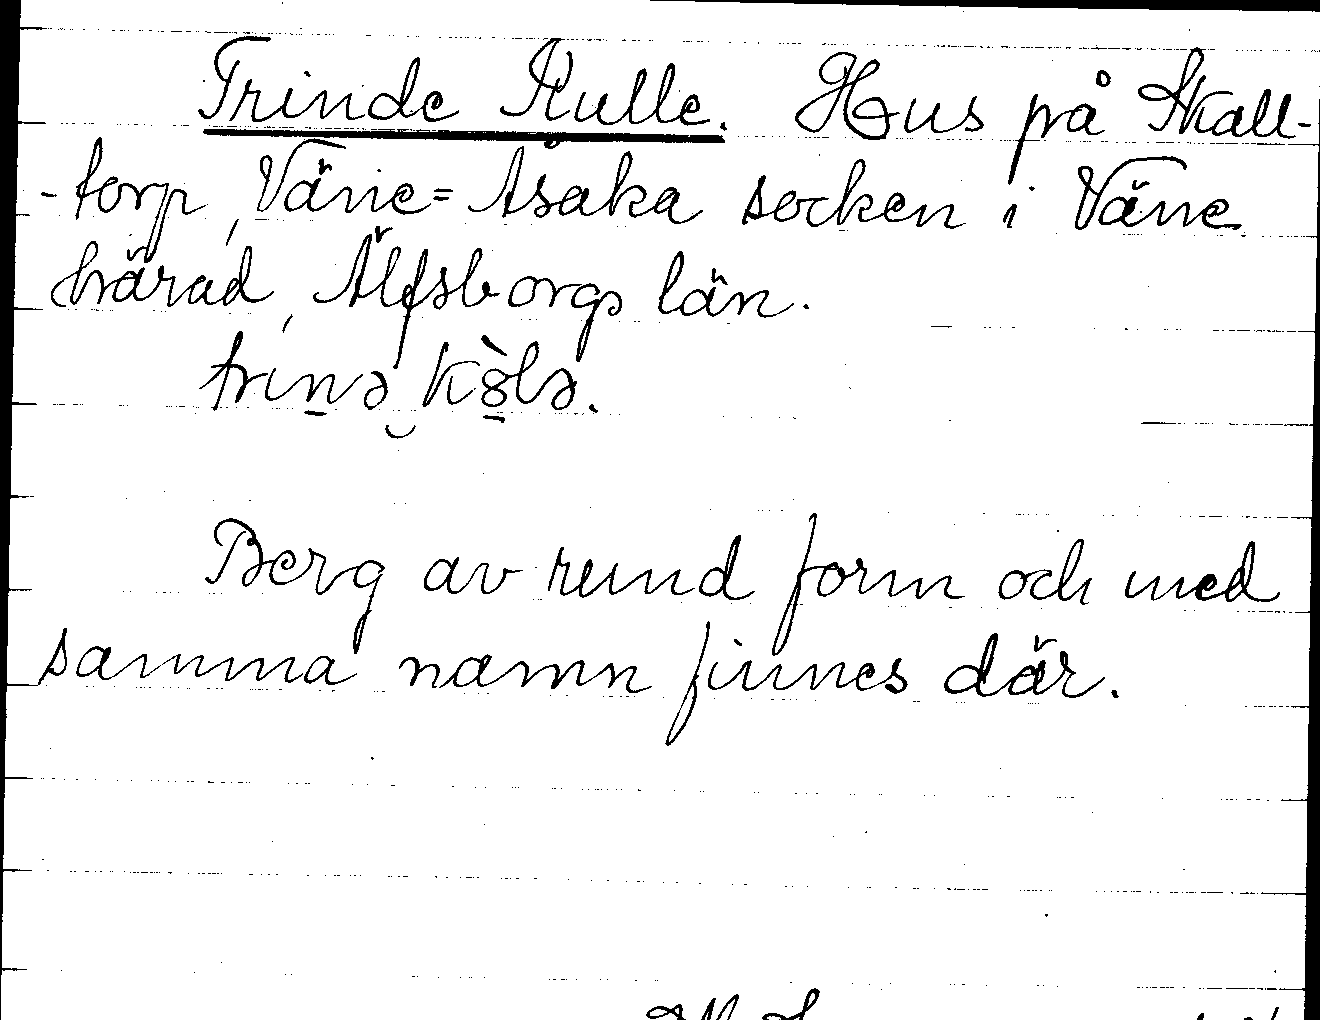 Trinde Kulle. Hus på Skall-
-torp, Väne=Åsaka socken i Väne
härad, Älfsborgs län.
trinə kòlə.
Berg av rund form och med
samma namn finnes där.